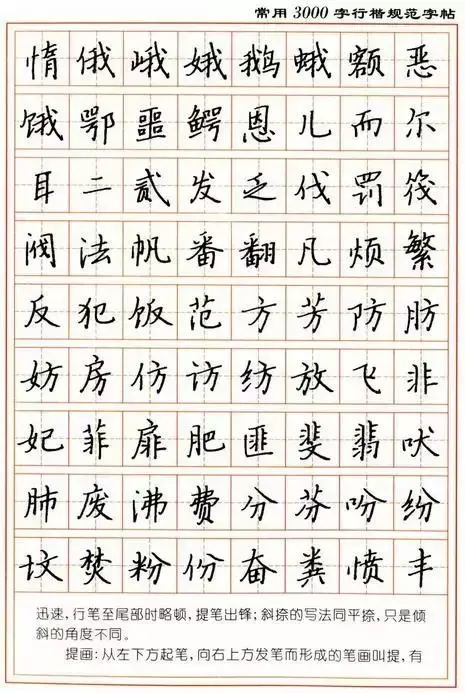 常用3000字行楷规范字帖
惰俄峨娥鹅蛾额恶
饿鄂噩鳄恩儿而尔
耳二贰发乏伐罚筏
阀法帆番翻凡烦繁
反犯饭范方芳防肪
妨房仿访纺放飞非
妃菲扉肥匪斐翡吠
肺废沸费分芬吩纷
坟焚粉份奋粪愤丰
迅速,行笔至尾部时略顿,提笔出锋;斜捺的写法同平捺,只是倾
斜的角度不同。
提画:从左下方起笔,向右上方发笔而形成的笔画叫提,有